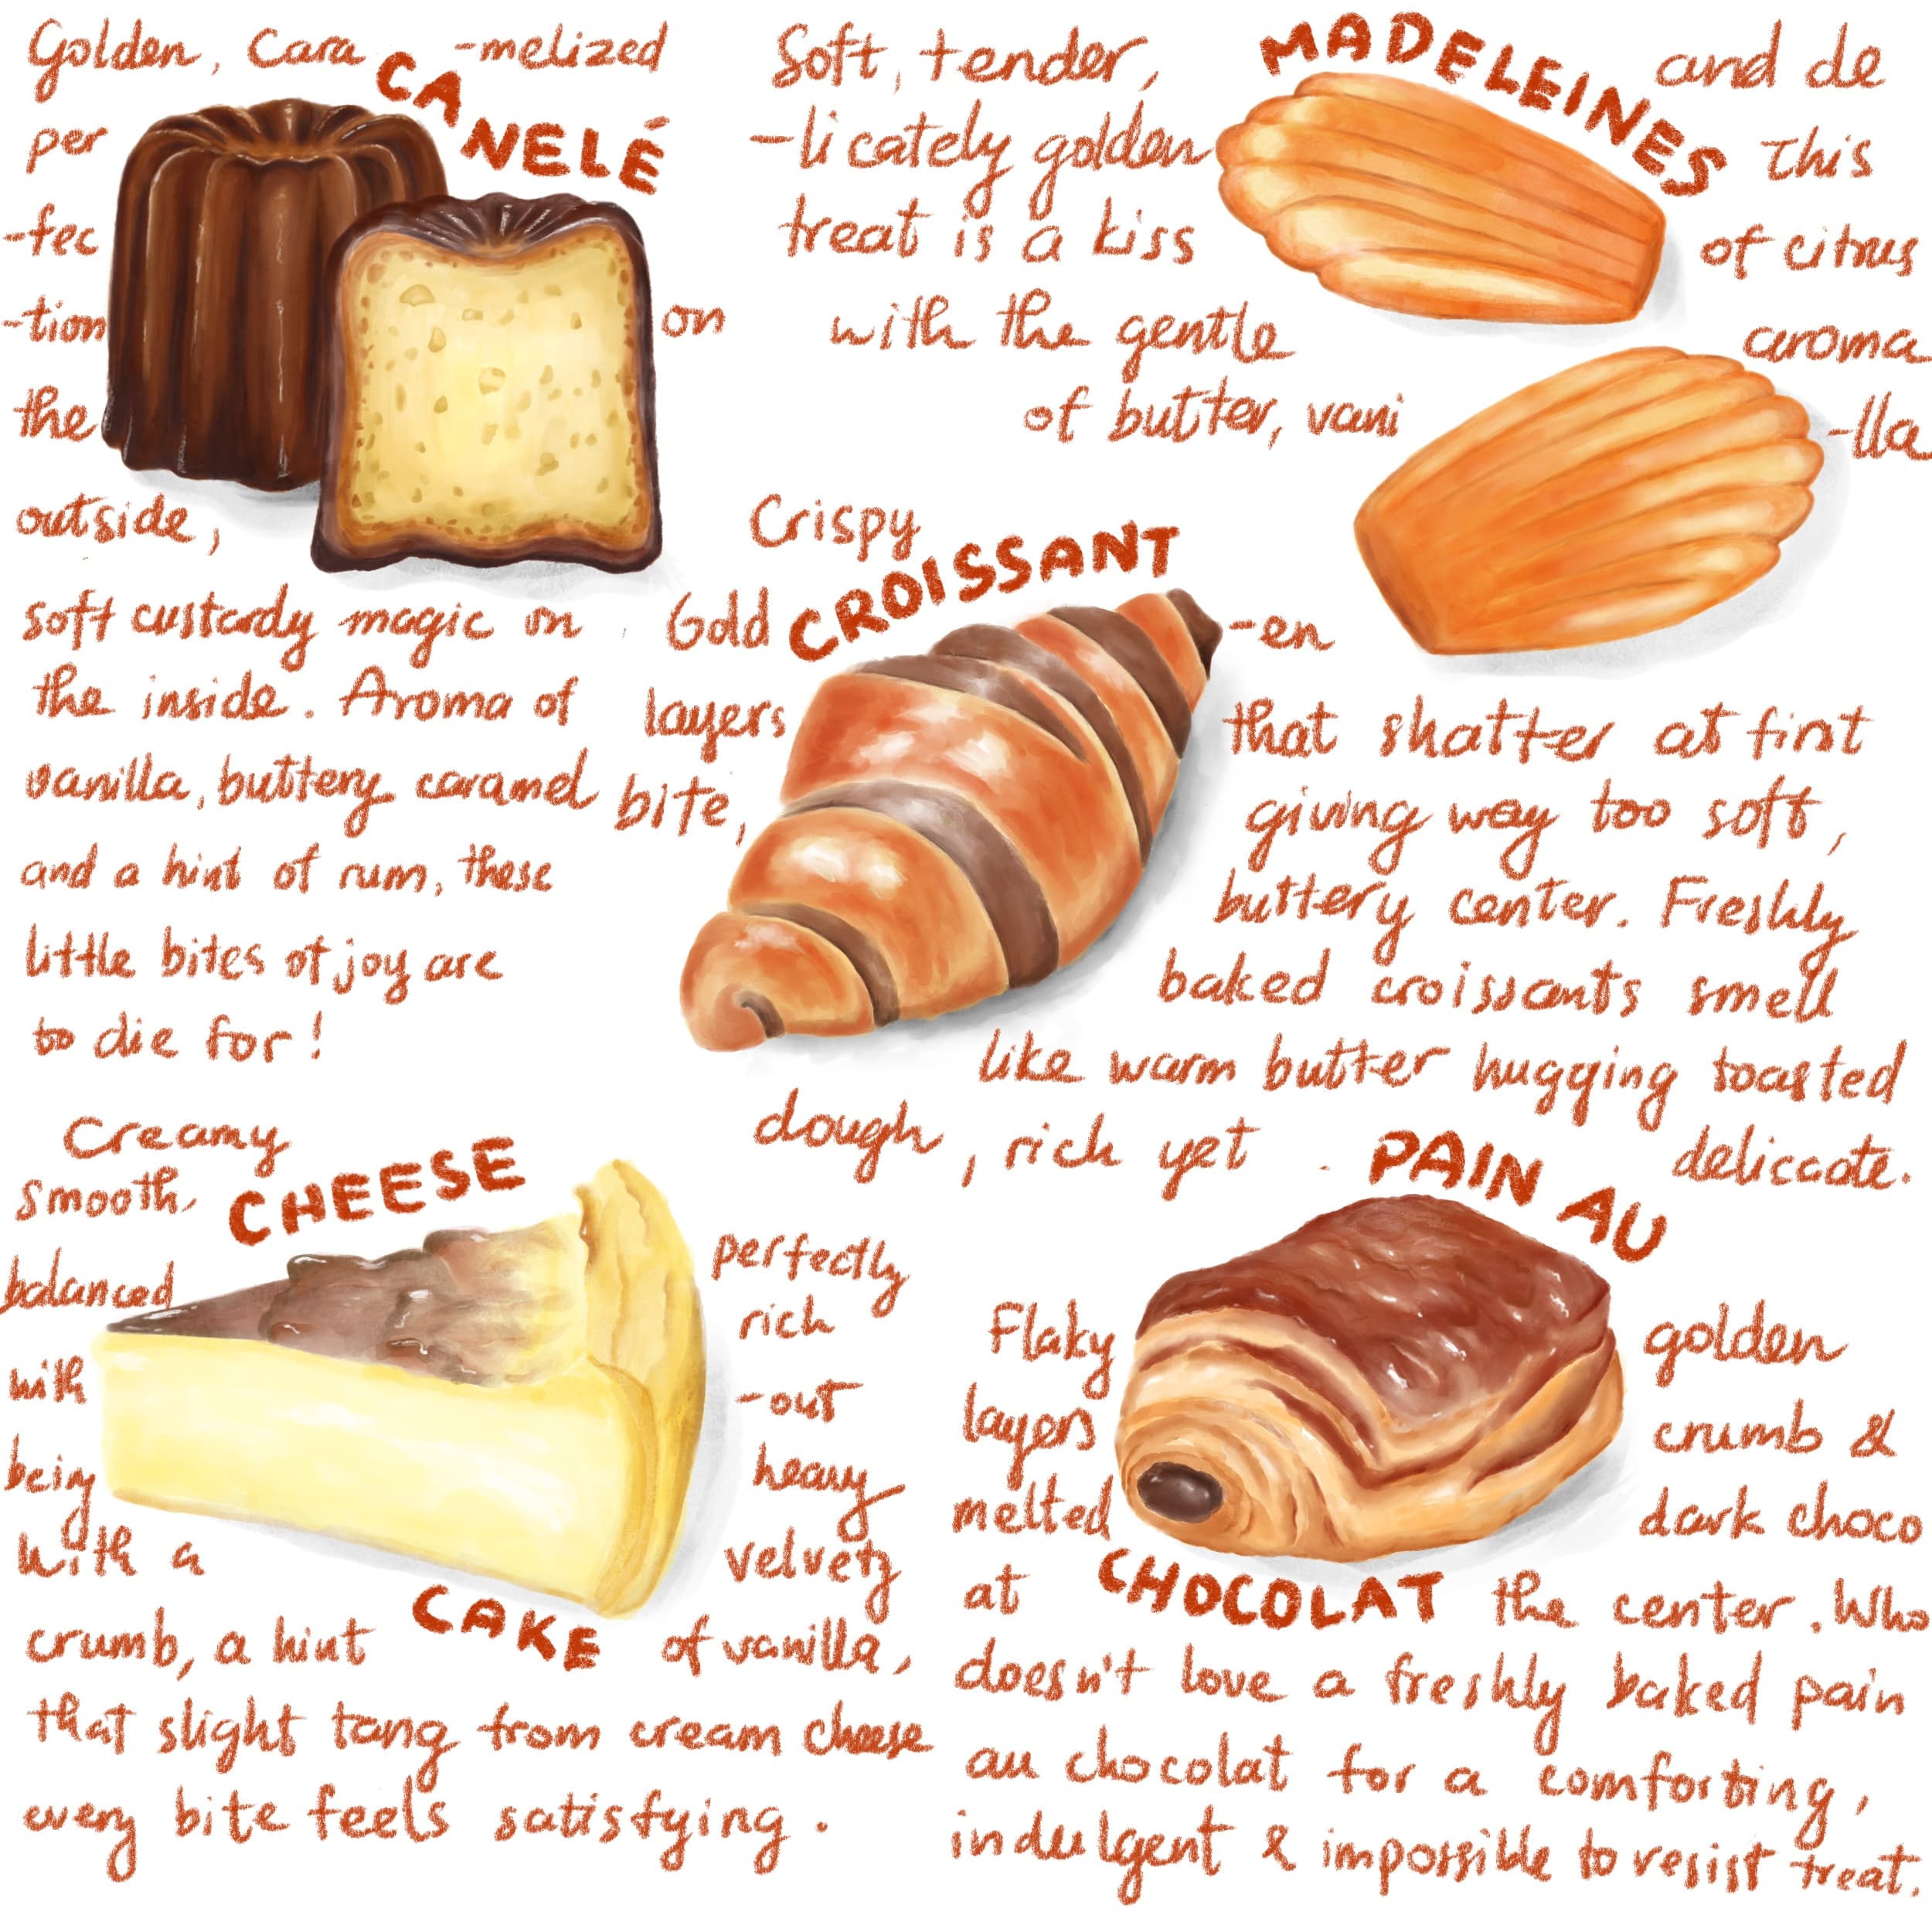 CANELÉ
Golden, Cara -melized
per
-fec
-tion on
the
outside,
soft custardy magic on
the inside. Aroma of
vanilla, buttery caramel
and a hint of rum, these
little bites of joy are
to die for!
MADELEINES
Soft, tender, and de
-licately golden This
treat is a kiss of citrus
with the gentle aroma
of butter, vani -lla
CROISSANT
Crispy
Gold -en
layers that shatter at first
bite, giving way too soft,
buttery center. Freshly
baked croissants smell
like warm butter hugging toasted
dough, rich yet deliccate.
CHEESE
CAKE
Creamy
smooth,
balanced perfectly
with rich
being -out
heavy
With a velvety
crumb, a hint of vanilla,
that slight tang from cream cheese
every bite feels satisfying.
PAIN AU
CHOCOLAT
Flaky golden
layers crumb &
melted dark choco
at the center. Who
doesn't love a freshly baked pain
au chocolat for a comforting,
indulgent & impossible to resist treat.